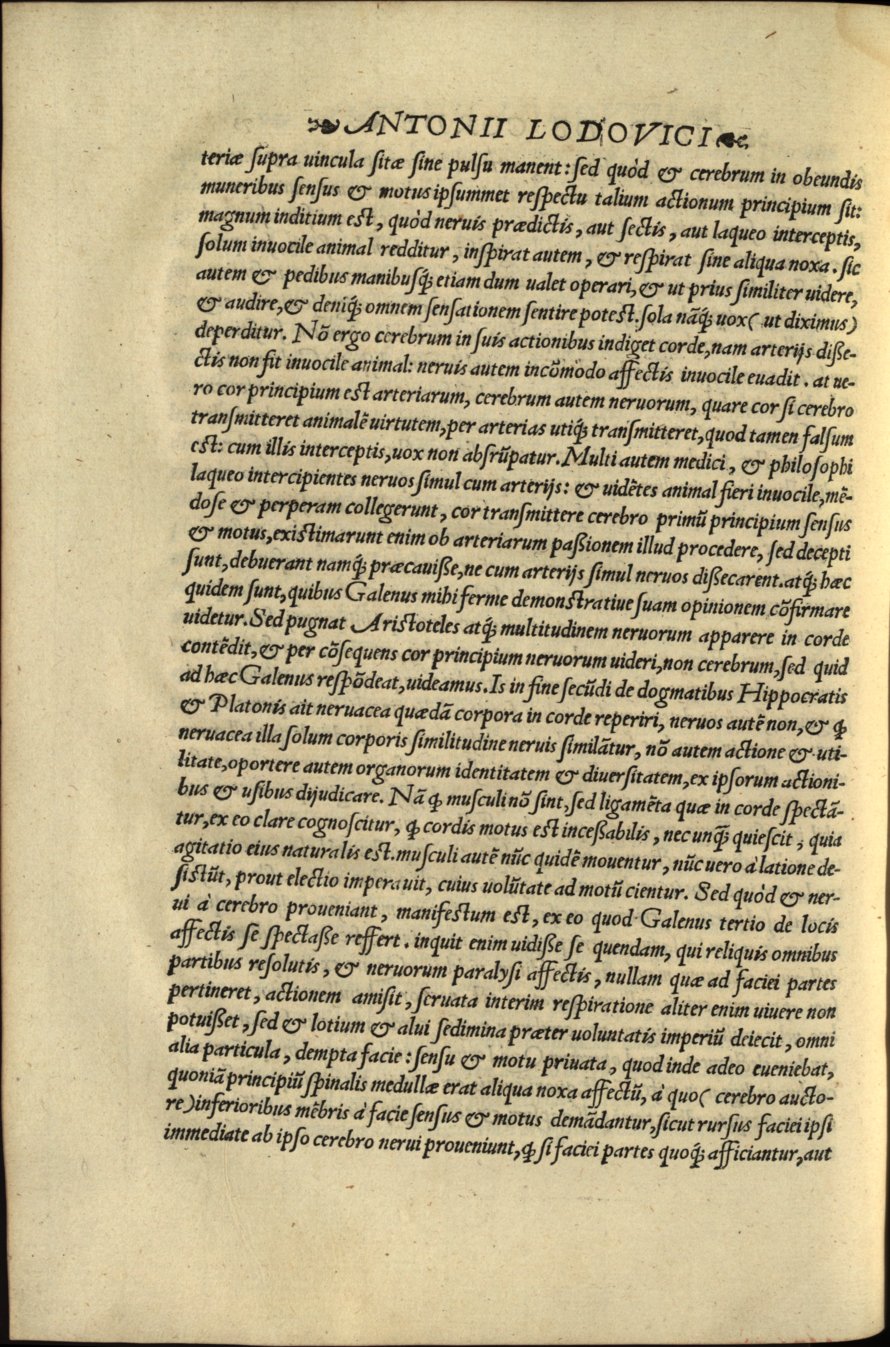 ANTONII LODOVICI
teriæ ſupra uincula ſitæ ſine pulſu manent: ſed quòd & cerebrum in obeundis
muneribus ſenſus & motus ipſummet reſpectu talium actionum principium ſit:
magnum inditium eſt, quòd neruis prædictis, aut ſectis, aut laqueo interceptis,
ſolum inuocile animal redditur, inſpirat autem, & reſpirat ſine aliqua noxa. ſic
autem & pedibus manibuſq́; etiam dum ualet operari, & ut prius ſimiliter uidere,
& audire, & deniq́; omnem ſenſationem ſentire poteſt. ſola nãq́; uox ( ut diximus)
deperditur. Nõ ergo cerebrum in ſuis actionibus indiget corde, nam arterijs diſſe-
ctis non fit inuocile animal: neruis autem incõmodo affectis inuocile euadit. at ue-
ro cor principium eſt arteriarum, cerebrum autem neruorum, quare cor ſi cerebro
tranſmitteret animalẽ uirtutem, per arterias utiq́; tranſmitteret, quod tamen falſum
eſt: cum illis interceptis, uox non abſrũpatur. Multi autem medici, & philoſophi
laqueo intercipientes neruos ſimul cum arterijs: & uidẽtes animal fieri inuocile, mẽ-
doſe & perperam collegerunt, cor tranſmittere cerebro primũ principium ſenſus
& motus, exiſtimarunt enim ob arteriarum paſſionem illud procedere, ſed decepti
ſunt, debuerant namq́; præcauiſſe, ne cum arterijs ſimul neruos diſſecarent. atq́; hæc
quidem ſunt, quibus Galenus mihi ferme demonſtratiue ſuam opinionem cõfirmare
uidetur. Sed pugnat Ariſtoteles atq́; multitudinem neruorum apparere in corde
contẽdit, & per cõſequens cor principium neruorum uideri, non cerebrum, ſed quid
ad hæc Galenus reſpõdeat, uideamus. Is in fine ſecũdi de dogmatibus Hippocratis
& Platonis ait neruacea quædã corpora in corde reperiri, neruos autẽ non, & ꝙ
neruacea illa ſolum corporis ſimilitudine neruis ſimilãtur, nõ autem actione & uti-
litate, oportere autem organorum identitatem & diuerſitatem, ex ipſorum actioni-
bus & uſibus dijudicare. Nã ꝙ muſculi nõ ſint, ſed ligamẽta quæ in corde ſpectã-
tur, ex eo clare cognoſcitur, ꝙ cordis motus eſt inceſſabilis, nec unq̃; quieſcit, quia
agitatio eius naturalis eſt. muſculi autẽ nũc quidẽ mouentur, nũc uero à latione de-
ſiſtũt, prout electio imperauit, cuius uolũtate ad motũ cientur. Sed quòd & ner-
ui à cerebro proueniant, manifeſtum eſt, ex eo quod Galenus tertio de locis
affectis ſe ſpectaſſe reffert. inquit enim uidiſſe ſe quendam, qui reliquis omnibus
partibus reſolutis, & neruorum paralyſi affectis, nullam quæ ad faciei partes
pertineret, actionem amiſit, ſeruata interim reſpiratione aliter enim uiuere non
potuiſſet, ſed & lotium & alui ſedimina præter uoluntatis imperiũ deiecit, omni
alia particula, dempta facie: ſenſu & motu priuata, quod inde adeo eueniebat,
quoniã principiũ ſpinalis medullæ erat aliqua noxa affectũ, à quo ( cerebro aucto-
re) inferioribus mẽbris à facie ſenſus & motus demãdantur, ſicut rurſus faciei ipſi
immediate ab ipſo cerebro nerui proueniunt, ꝙ ſi faciei partes quoq́; afficiantur, aut